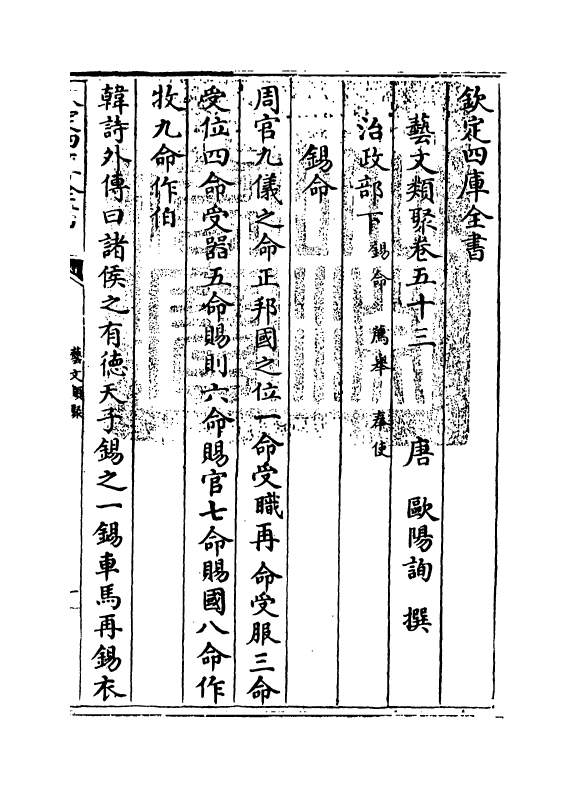 欽定四庫全書
藝文類聚卷五十三 唐 歐陽詢 撰
治政部下 錫命 薦舉 奉使
錫命
周官九儀之命正邦國之位一命受職再命受服三命
受位四命受器五命賜則六命賜官七命賜國八命作
牧九命作伯
韓詩外傳曰諸侯之有德天子錫之一錫車馬再錫衣
藝文類聚
一